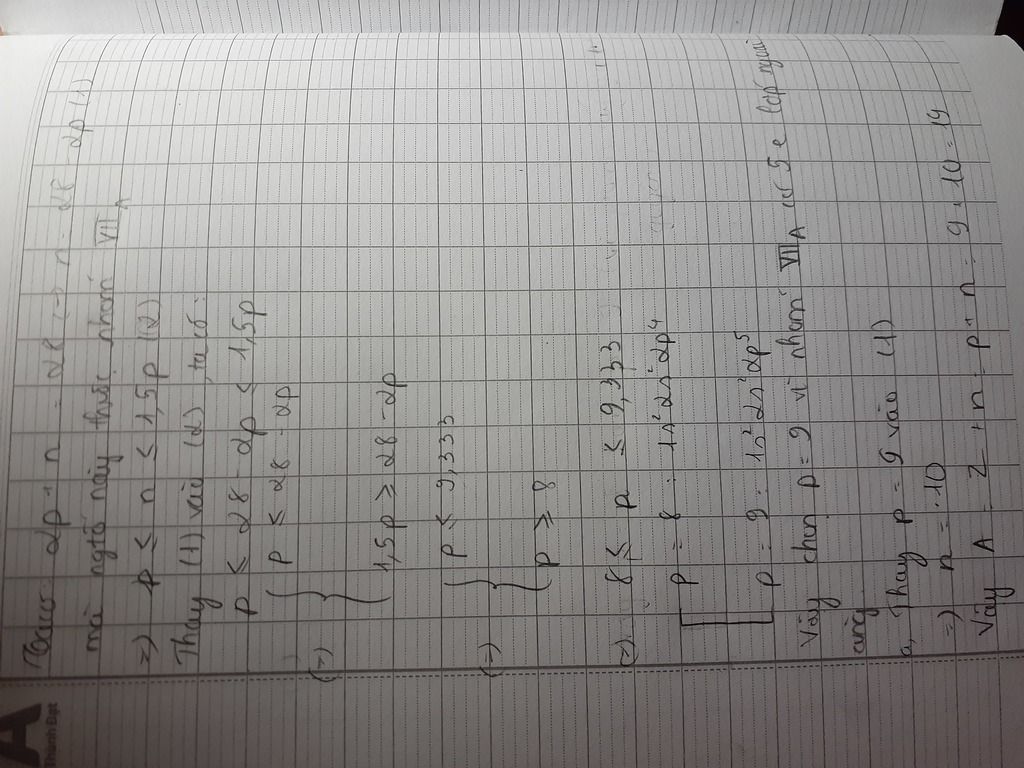 Theo có: 2p + n = 28 (=) n = 28 - 2p (1)
mà ngtố này thuộc nhóm VIIA
=) p ≤ n ≤ 1,5p (2)
Thay (1) vào (2), ta có:
p ≤ 28 - 2p ≤ 1,5p
(=) { p ≤ 28 - 2p
1,5p ≥ 28 - 2p
(=) { p ≤ 9,333
p ≥ 8
(=) 8 ≤ p ≤ 9,333
[ p = 8 : 1s²2s²2p⁴
p = 9 : 1s²2s²2p⁵
Vậy chọn p = 9 vì nhóm VIIA có 5 e lớp ngoài
cùng
a, Thay p = 9 vào (1)
=) n = 10
Vậy A = Z + n = p + n = 9 + 10 = 19
A
Thành Đạt